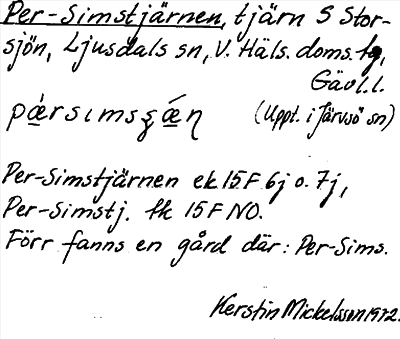 Per-Simstjärnen, tjärn S Stor-
sjön, Ljusdals sn, V. Häls. doms. fg,
Gävl.l.
pæ̀rsımsʂǽn̩ (Uppt. i Järvsö sn)
Per-Simstjärnen ek 15F 6j o. 7j,
Per-Simstj. tk 15F NO.
Förr fanns en gård där: Per-Sims.
Kerstin Mickelsson 1972.